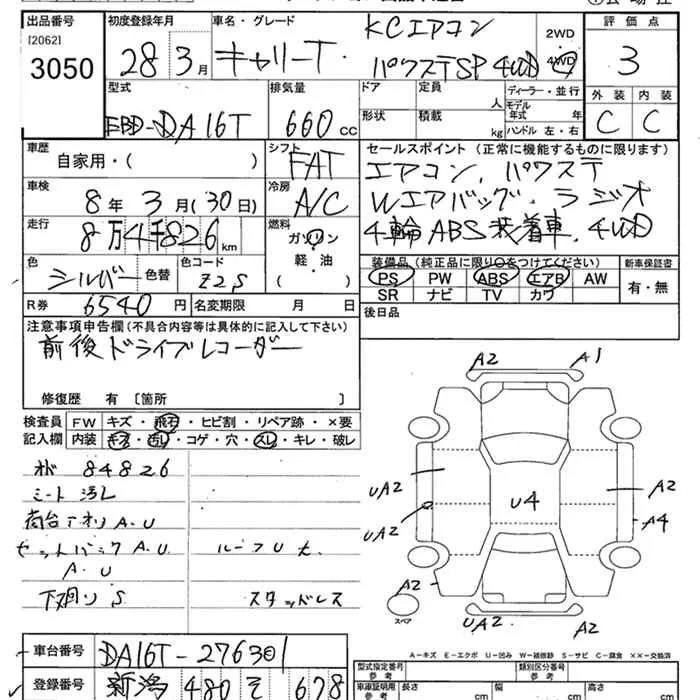 出品番号 初度登録年月 車名・グレード 2WD 評価点
[2062] KCエアコン
3050 28年3月 キャリーT パワステSP 4WD 4WD 3
型式 排気量 ドア 定員 人 ディーラー・並行 外装 内装
EBD-DA16T 660cc 形状 積載 kg モデル年式 年 C C
ハンドル 左・右
車歴 自家用・( ) シフト FAT セールスポイント(正常に機能するものに限ります)
エアコン、パワステ
車検 8年3月(30日) 冷房 A/C Wエアバッグ、ラジオ
走行 8万4千826km 燃料 ガソリン 4輪ABS装着車、4WD
軽・油
( )
色 シルバー 色替 色コード Z2S 装備品(純正品に限り○をつけてください) 新車保証書
PS PW ABS エアB AW 有・無
SR ナビ TV カワ
R券 6540円 名変期限 月 日 後日品
注意事項申告欄(不具合内容等は具体的に記入して下さい)
前後ドライブレコーダー
修復歴 有 〔箇所 〕
検査員記入欄 FW キズ・飛石・ヒビ割・リペア跡・×要
内装 キズ・汚レ・コゲ・穴・スレ・キレ・破レ
84826
シート汚レ
荷台アオリA.U
セットバックA.U. ルーフU大
A.U
下廻りS スタッドレス
A2 A1
UA2 U4 A2
UA2 A4
A2
スペア UA2 A2
A-キズ E-エクボ U-凹み W-補修跡 S-サビ C-腐食 ××-交換済
車台番号 DA16T-276301
登録番号 新潟 480 そ 678
型式指定番号 参考 類別区分番号 参考
車庫証明用 参考 長さ cm 幅 cm 高さ cm